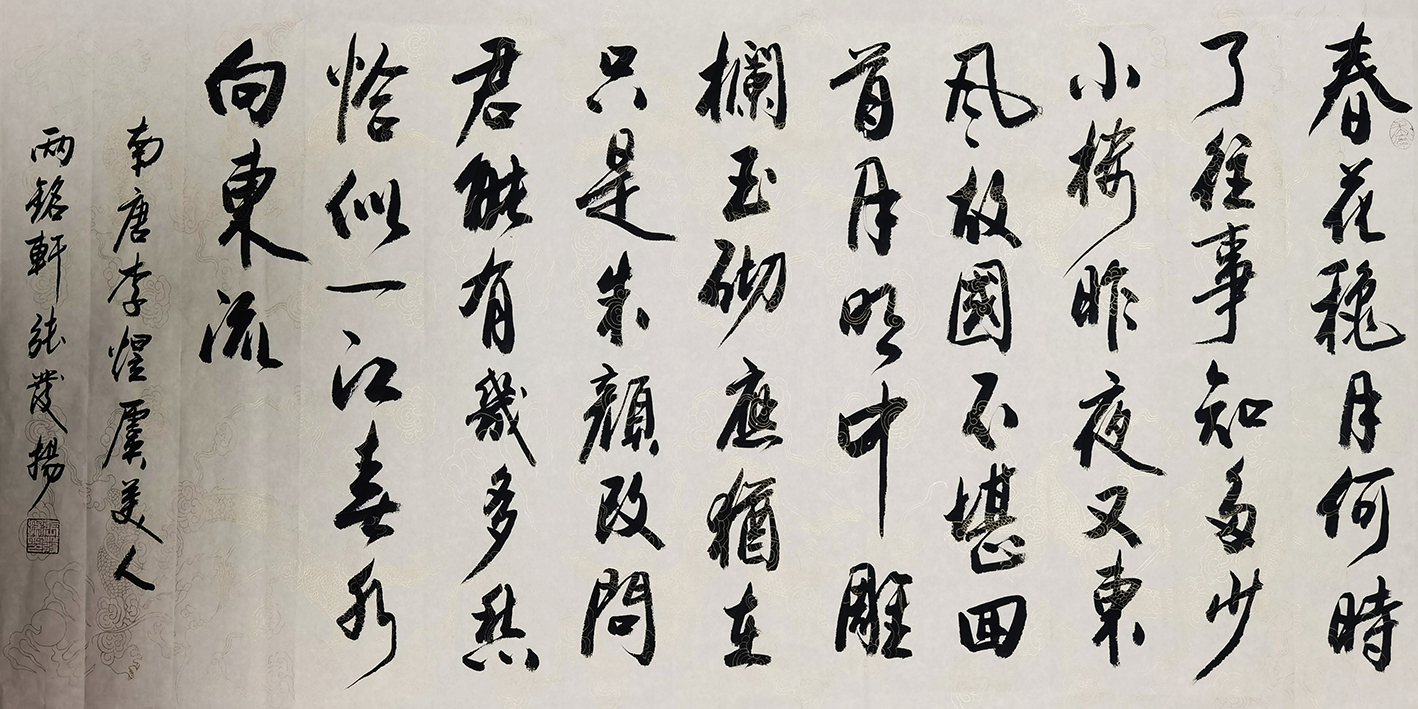 春花穐月何時
了往事知多少
小楼昨夜又東
风故國不堪回
首月明中雕
欄玉砌應猶在
只是朱顔改問
君能有幾多愁
恰似一江春水
向東流
南唐李煜虞美人
兩銘軒張發揚